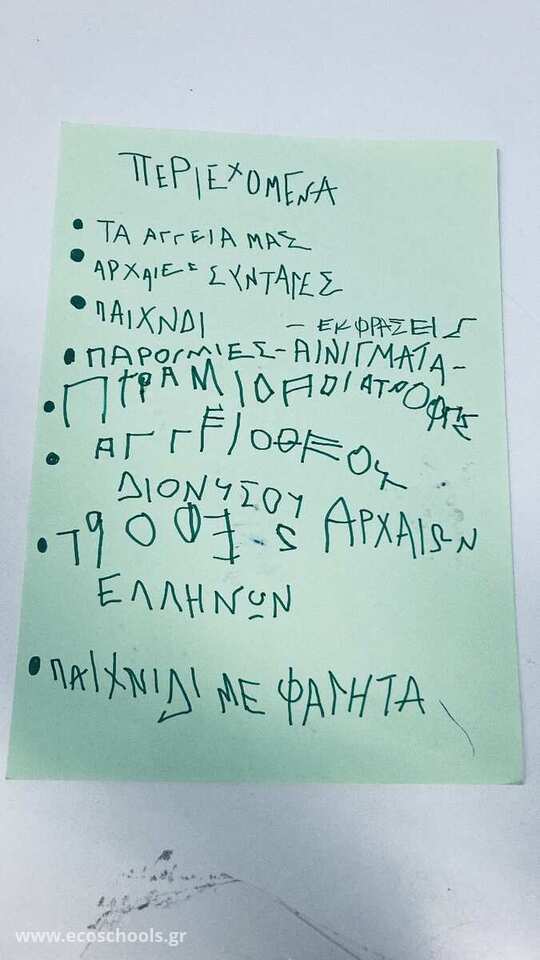 ΠΕΡΙΕΧΟΜΕΝΑ
• ΤΑ ΑΓΓΕΙΑ ΜΑΣ
• ΑΡΧΑΙΕΣ ΣΥΝΤΑΓΕΣ
• ΠΑΙΧΝΔΙ - ΕΚΦΡΑΣΕΙΣ
• ΠΑΡΟΓΜΙΕΣ-ΑΙΝΙΓΜΑΤΑ-
• ΠΥΡΑΜΙΔΑ ΔΙΑΤΡΟΦΗΣ
• ΑΓΓΕΙΟ ΘΕΟΥ
ΔΙΟΝΥΣΟΥ
• ΤΡΟΦΕΣ ΑΡΧΑΙΩΝ
ΕΛΛΗΝΩΝ
• ΠΑΙΧΝΙΔΙ ΜΕ ΦΑΓΗΤΑ
www.ecoschools.gr